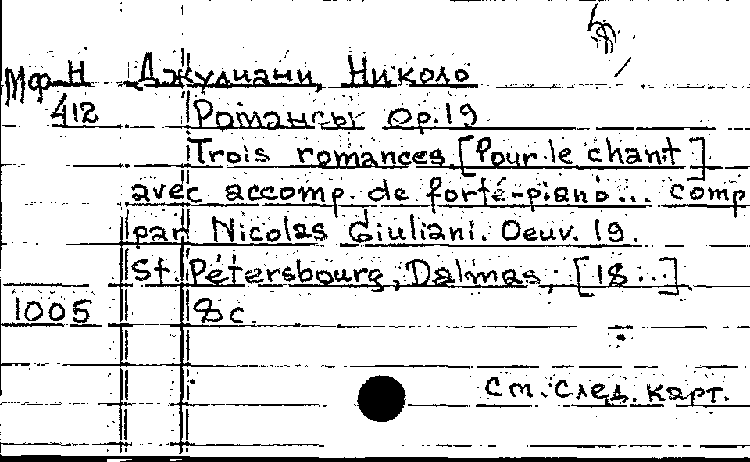 Мф Н Джулиани, Николо
412 Романсы op.19
Trois romances [Pour le chant]
avec accomp. de forté-piano... comp
par Nicolas Giuliani. Oeuv. 19.
St. Pétersbourg, Dalmas, [18...]
1005 8 с.
См. след. карт.